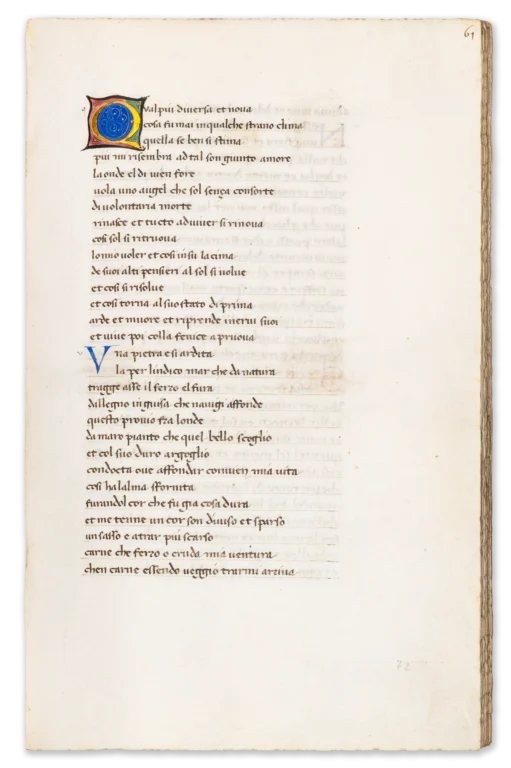 61
Qual piu diversa et nova
cosa fu mai in qualche strano clima
quella se ben si stima
piu mi risembra ad tal son giunto amore
la onde el di vien fore
vola uno augel che sol senza consorte
di volontaria morte
rinasce et tucto ad viver si rinova
cosi sol si ritruova
lo mio voler et cosi in su la cima
de suoi alti pensieri al sol si volve
et cosi si risolve
et cosi torna al suo stato di prima
arde et muore et riprende inervi suoi
et vive poi colla fenice a pruova
Una pietra e si ardita
la per lindico mar che da natura
tragge asse il ferro el fura
dal legno in guisa che navigi affonde
questo provo fra londe
damaro pianto che quel bello scoglio
et col suo duro argoglio
condocta ove affondar convien mia vita
cosi ha lalma sfornita
furandol cor che fu gia cosa dura
et me tenne un cor son diviso et sparso
un sasso e a trar piu scarso
carne che ferro o cruda mia ventura
chen carne essendo veggio trarmi a riva
32